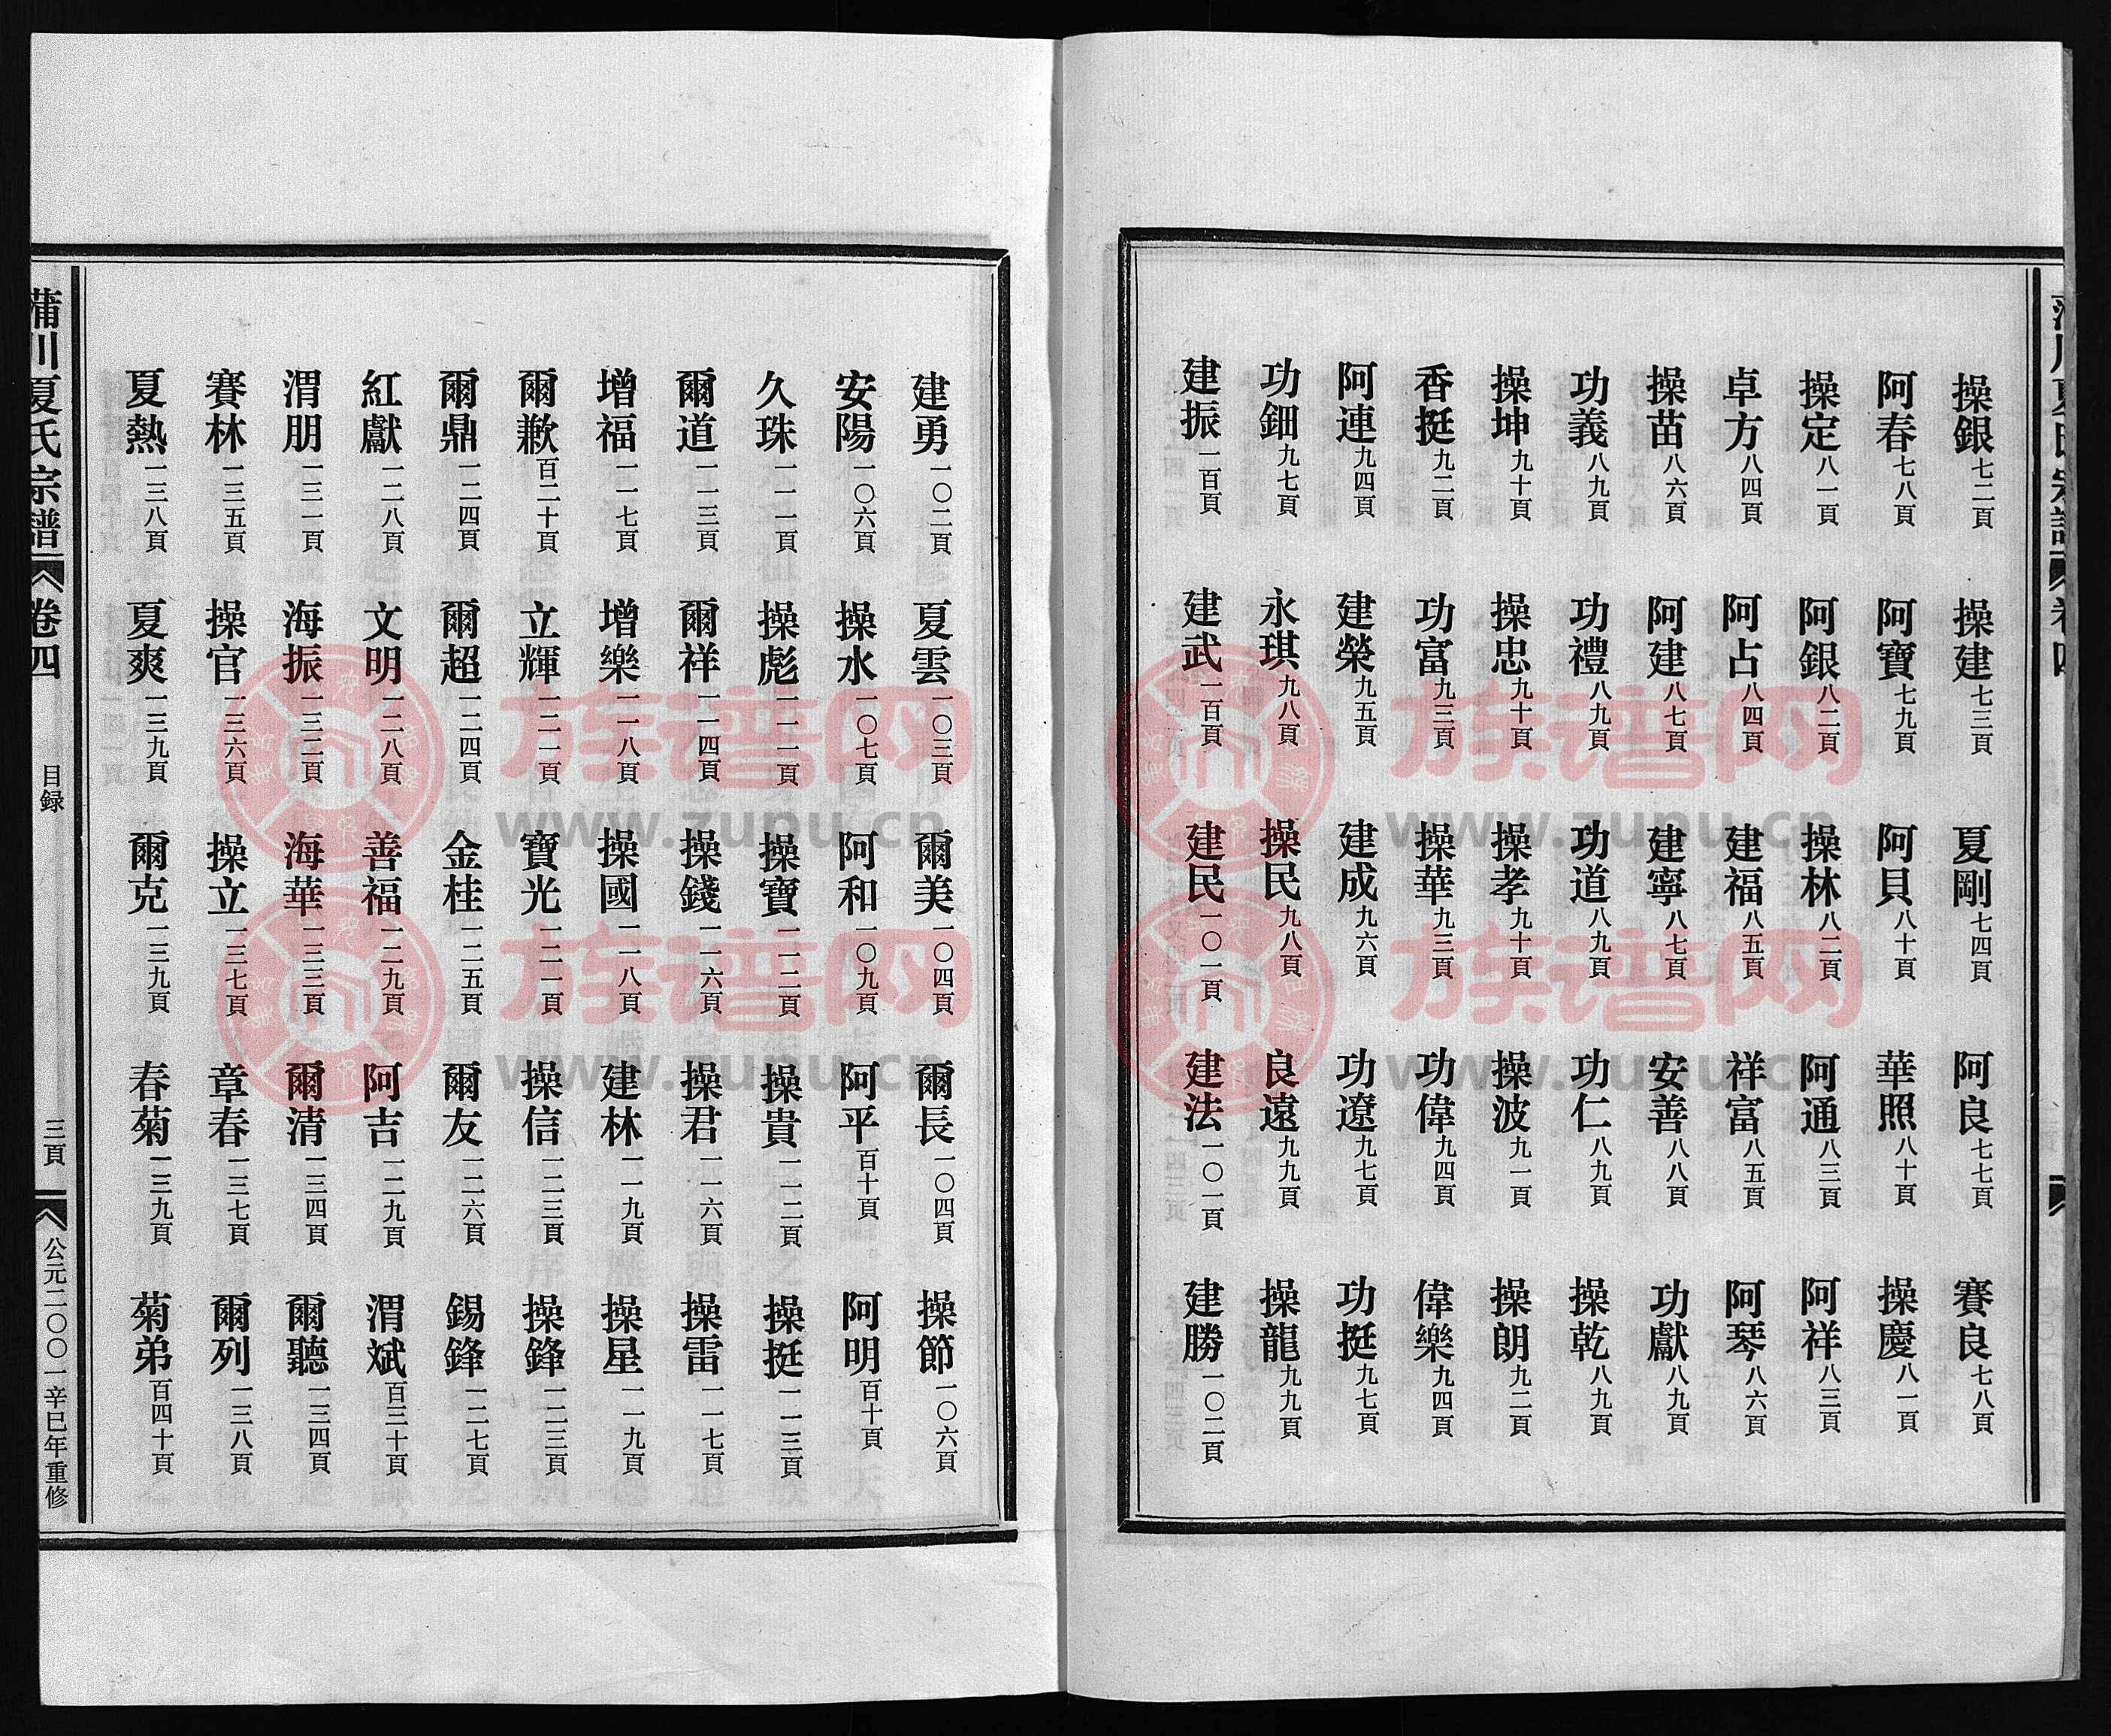 操銀七二頁 操建七三頁 夏剛七四頁 阿良七七頁 賽良七八頁
阿春七八頁 阿寶七九頁 阿貝八十頁 華照八十頁 操慶八一頁
操定八一頁 阿銀八二頁 操林八二頁 阿通八三頁 阿祥八三頁
卓方八四頁 阿占八四頁 建福八五頁 祥富八五頁 阿琴八六頁
操苗八六頁 阿建八七頁 建寧八七頁 安善八八頁 功獻八九頁
功義八九頁 功禮八九頁 功道八九頁 功仁八九頁 操乾八九頁
操坤九十頁 操忠九十頁 操孝九十頁 操波九一頁 操朗九二頁
香挺九二頁 功富九三頁 操華九三頁 功偉九四頁 偉樂九四頁
阿連九四頁 建榮九五頁 建成九六頁 功遼九七頁 功挺九七頁
功鈿九七頁 永琪九八頁 操民九八頁 良遠九九頁 操龍九九頁
建振一百頁 建武一百頁 建民一〇一頁 建法一〇一頁 建勝一〇二頁
建勇一〇二頁 夏雲一〇三頁 爾美一〇四頁 爾長一〇四頁 操節一〇六頁
安陽一〇六頁 操水一〇七頁 阿和一〇九頁 阿平百十頁 阿明百十頁
久珠一一一頁 操彪一一一頁 操寶一一二頁 操貴一一二頁 操挺一一三頁
爾道一一三頁 爾祥一一四頁 操錢一一六頁 操君一一六頁 操雷一一七頁
增福一一七頁 增樂一一八頁 操國一一八頁 建林一一九頁 操星一一九頁
爾歉百二十頁 立輝一二一頁 寶光一二一頁 操信一二三頁 操鋒一二三頁
爾鼎一二四頁 爾超一二四頁 金桂一二五頁 爾友一二六頁 錫鋒一二七頁
紅獻一二八頁 文明一二八頁 善福一二九頁 阿吉一二九頁 渭斌百三十頁
渭朋一三一頁 海振一三二頁 海華一三三頁 爾清一三四頁 爾聽一三四頁
賽林一三五頁 操官一三六頁 操立一三七頁 章春一三七頁 爾列一三八頁
夏熱一三八頁 夏爽一三九頁 爾克一三九頁 春菊一三九頁 菊弟百四十頁
蒲川夏氏宗譜 卷四 目録 三頁 公元二〇〇一辛巳年重修
族谱网
www.zupu.cn
族谱网
www.zupu.cn
族谱网
www.zupu.cn
族谱网
www.zupu.cn